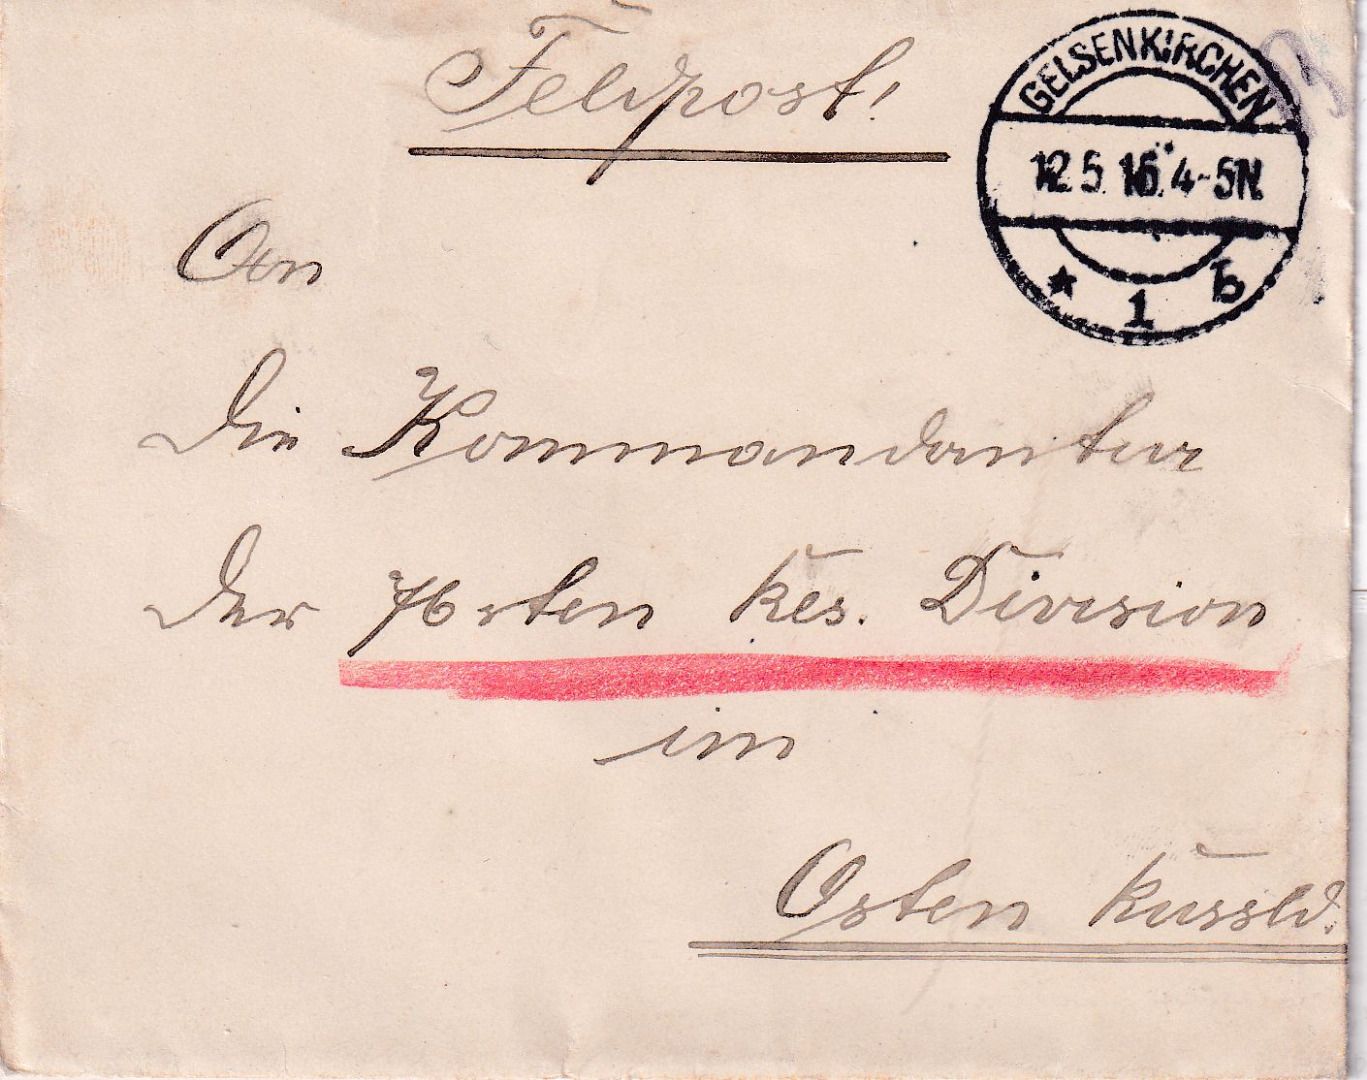 Feldpost!
GELSENKIRCHEN
12.5.16. 4-5N.
* 1 b
An
die Kommandantur
der 76sten Res. Division
im
Osten Russld.